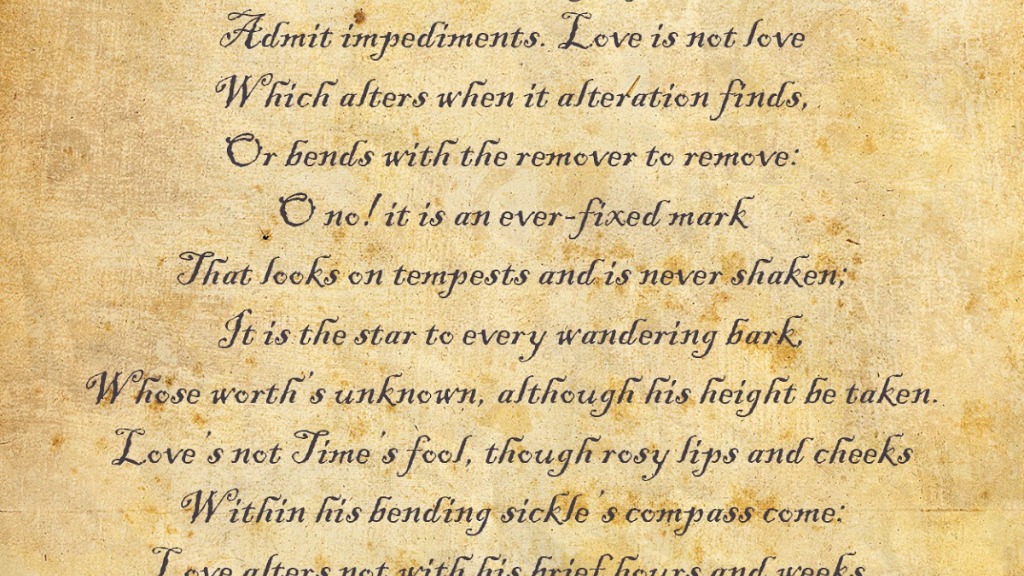 Admit impediments. Love is not love
Which alters when it alteration finds,
Or bends with the remover to remove:
O no! it is an ever-fixed mark
That looks on tempests and is never shaken;
It is the star to every wandering bark,
Whose worth's unknown, although his height be taken.
Love's not Time's fool, though rosy lips and cheeks
Within his bending sickle's compass come:
Love alters not with his brief hours and weeks